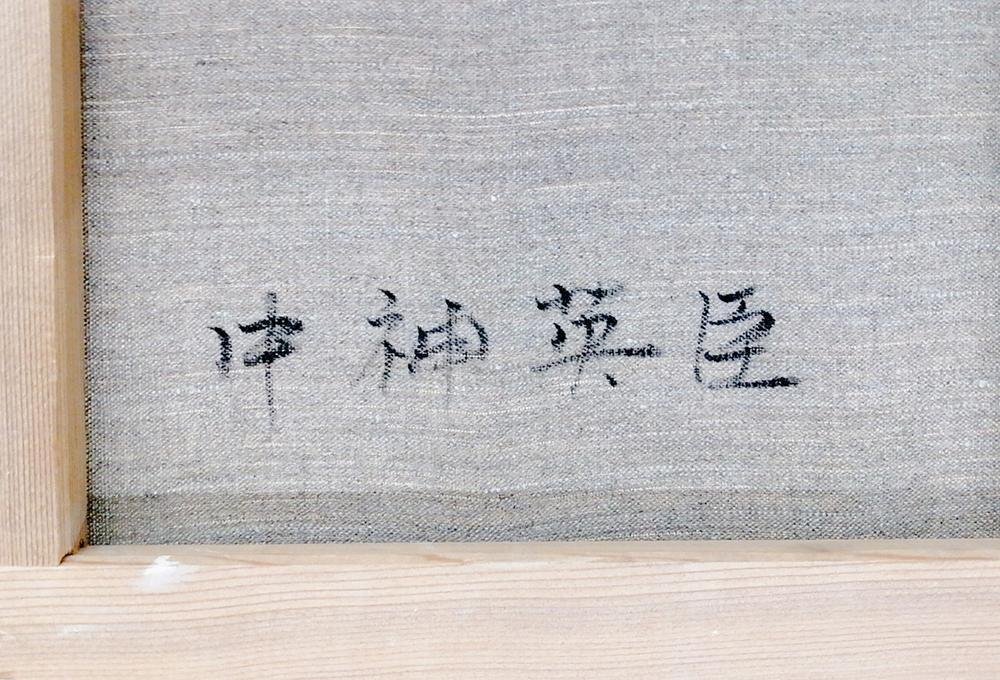 中神英臣